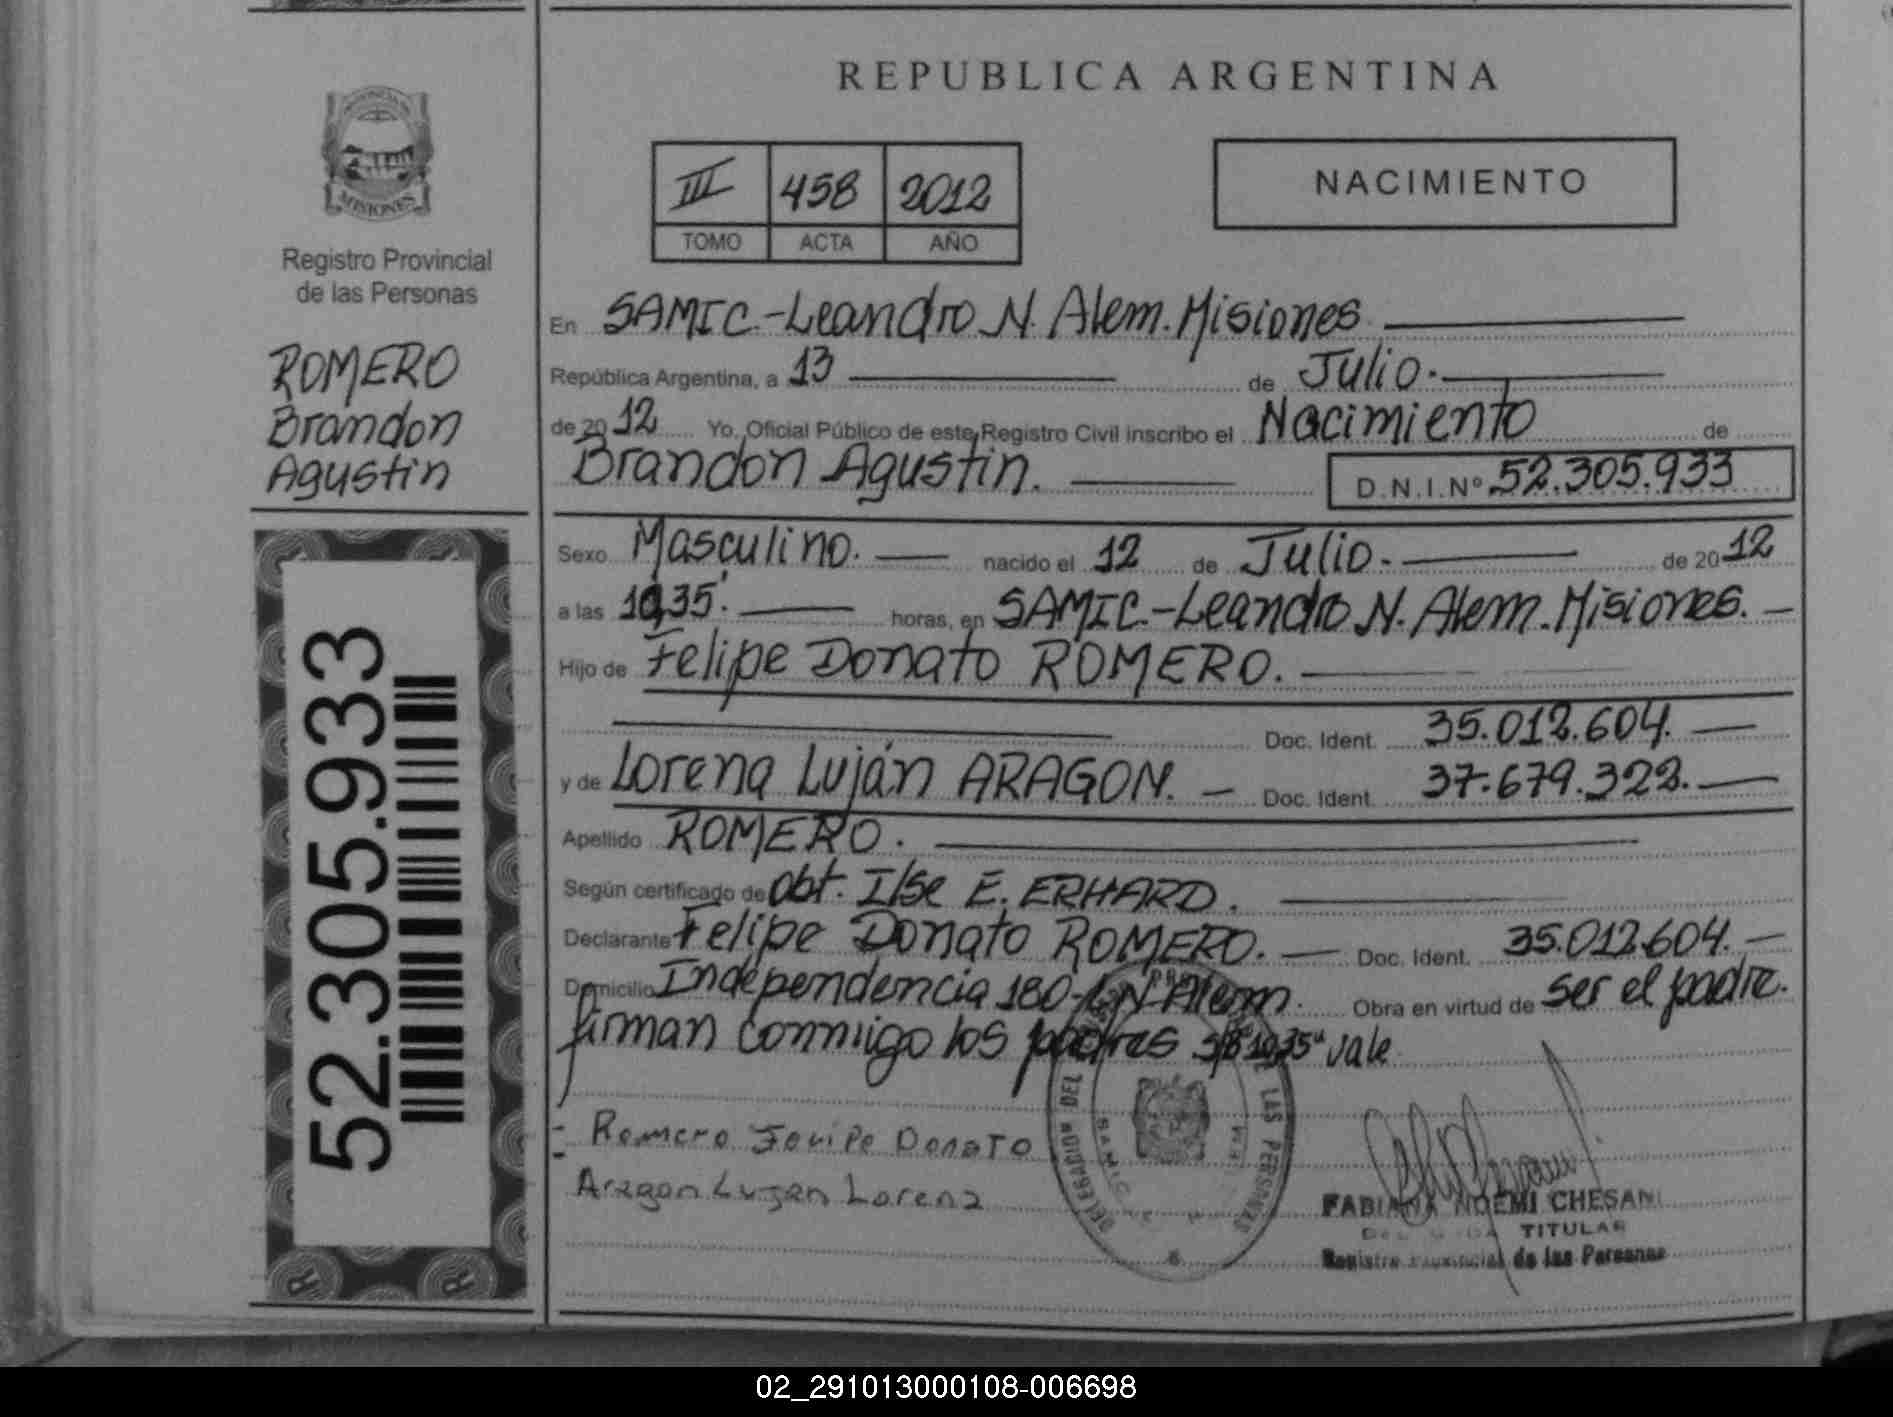 REPUBLICA ARGENTINA
MISIONES
Registro Provincial
de las Personas
ROMERO
Brandon
Agustin
52.305.933
III 458 2012
TOMO ACTA AÑO
NACIMIENTO
En SAMIC.-Leandro N. Alem. Misiones
República Argentina, a 13 de Julio.
de 2012 Yo, Oficial Público de este Registro Civil inscribo el Nacimiento de
Brandon Agustin. D.N.I.Nº 52.305.933
Sexo Masculino. nacido el 12 de Julio. de 2012
a las 10,35'. horas, en SAMIC.-Leandro N. Alem. Misiones.
Hijo de Felipe Donato ROMERO.
Doc. Ident. 35.012.604.
y de Lorena Luján ARAGON. Doc. Ident. 37.679.322.
Apellido ROMERO.
Según certificado de Obt. Ilse E. ERHARD.
Declarante Felipe Donato ROMERO. Doc. Ident. 35.012.604.
Domicilio Independencia 180-L.N.Alem. Obra en virtud de ser el padre.
firman conmigo los padres S/B 10,35" vale
Romero Felipe Donato
Aragon Lujan Lorena
DELEGACION DEL DE LAS PERSONAS
SAMIC
FABIANA NOEMI CHESANI
TITULAR
Registro Provincial de las Personas
02_291013000108-006698